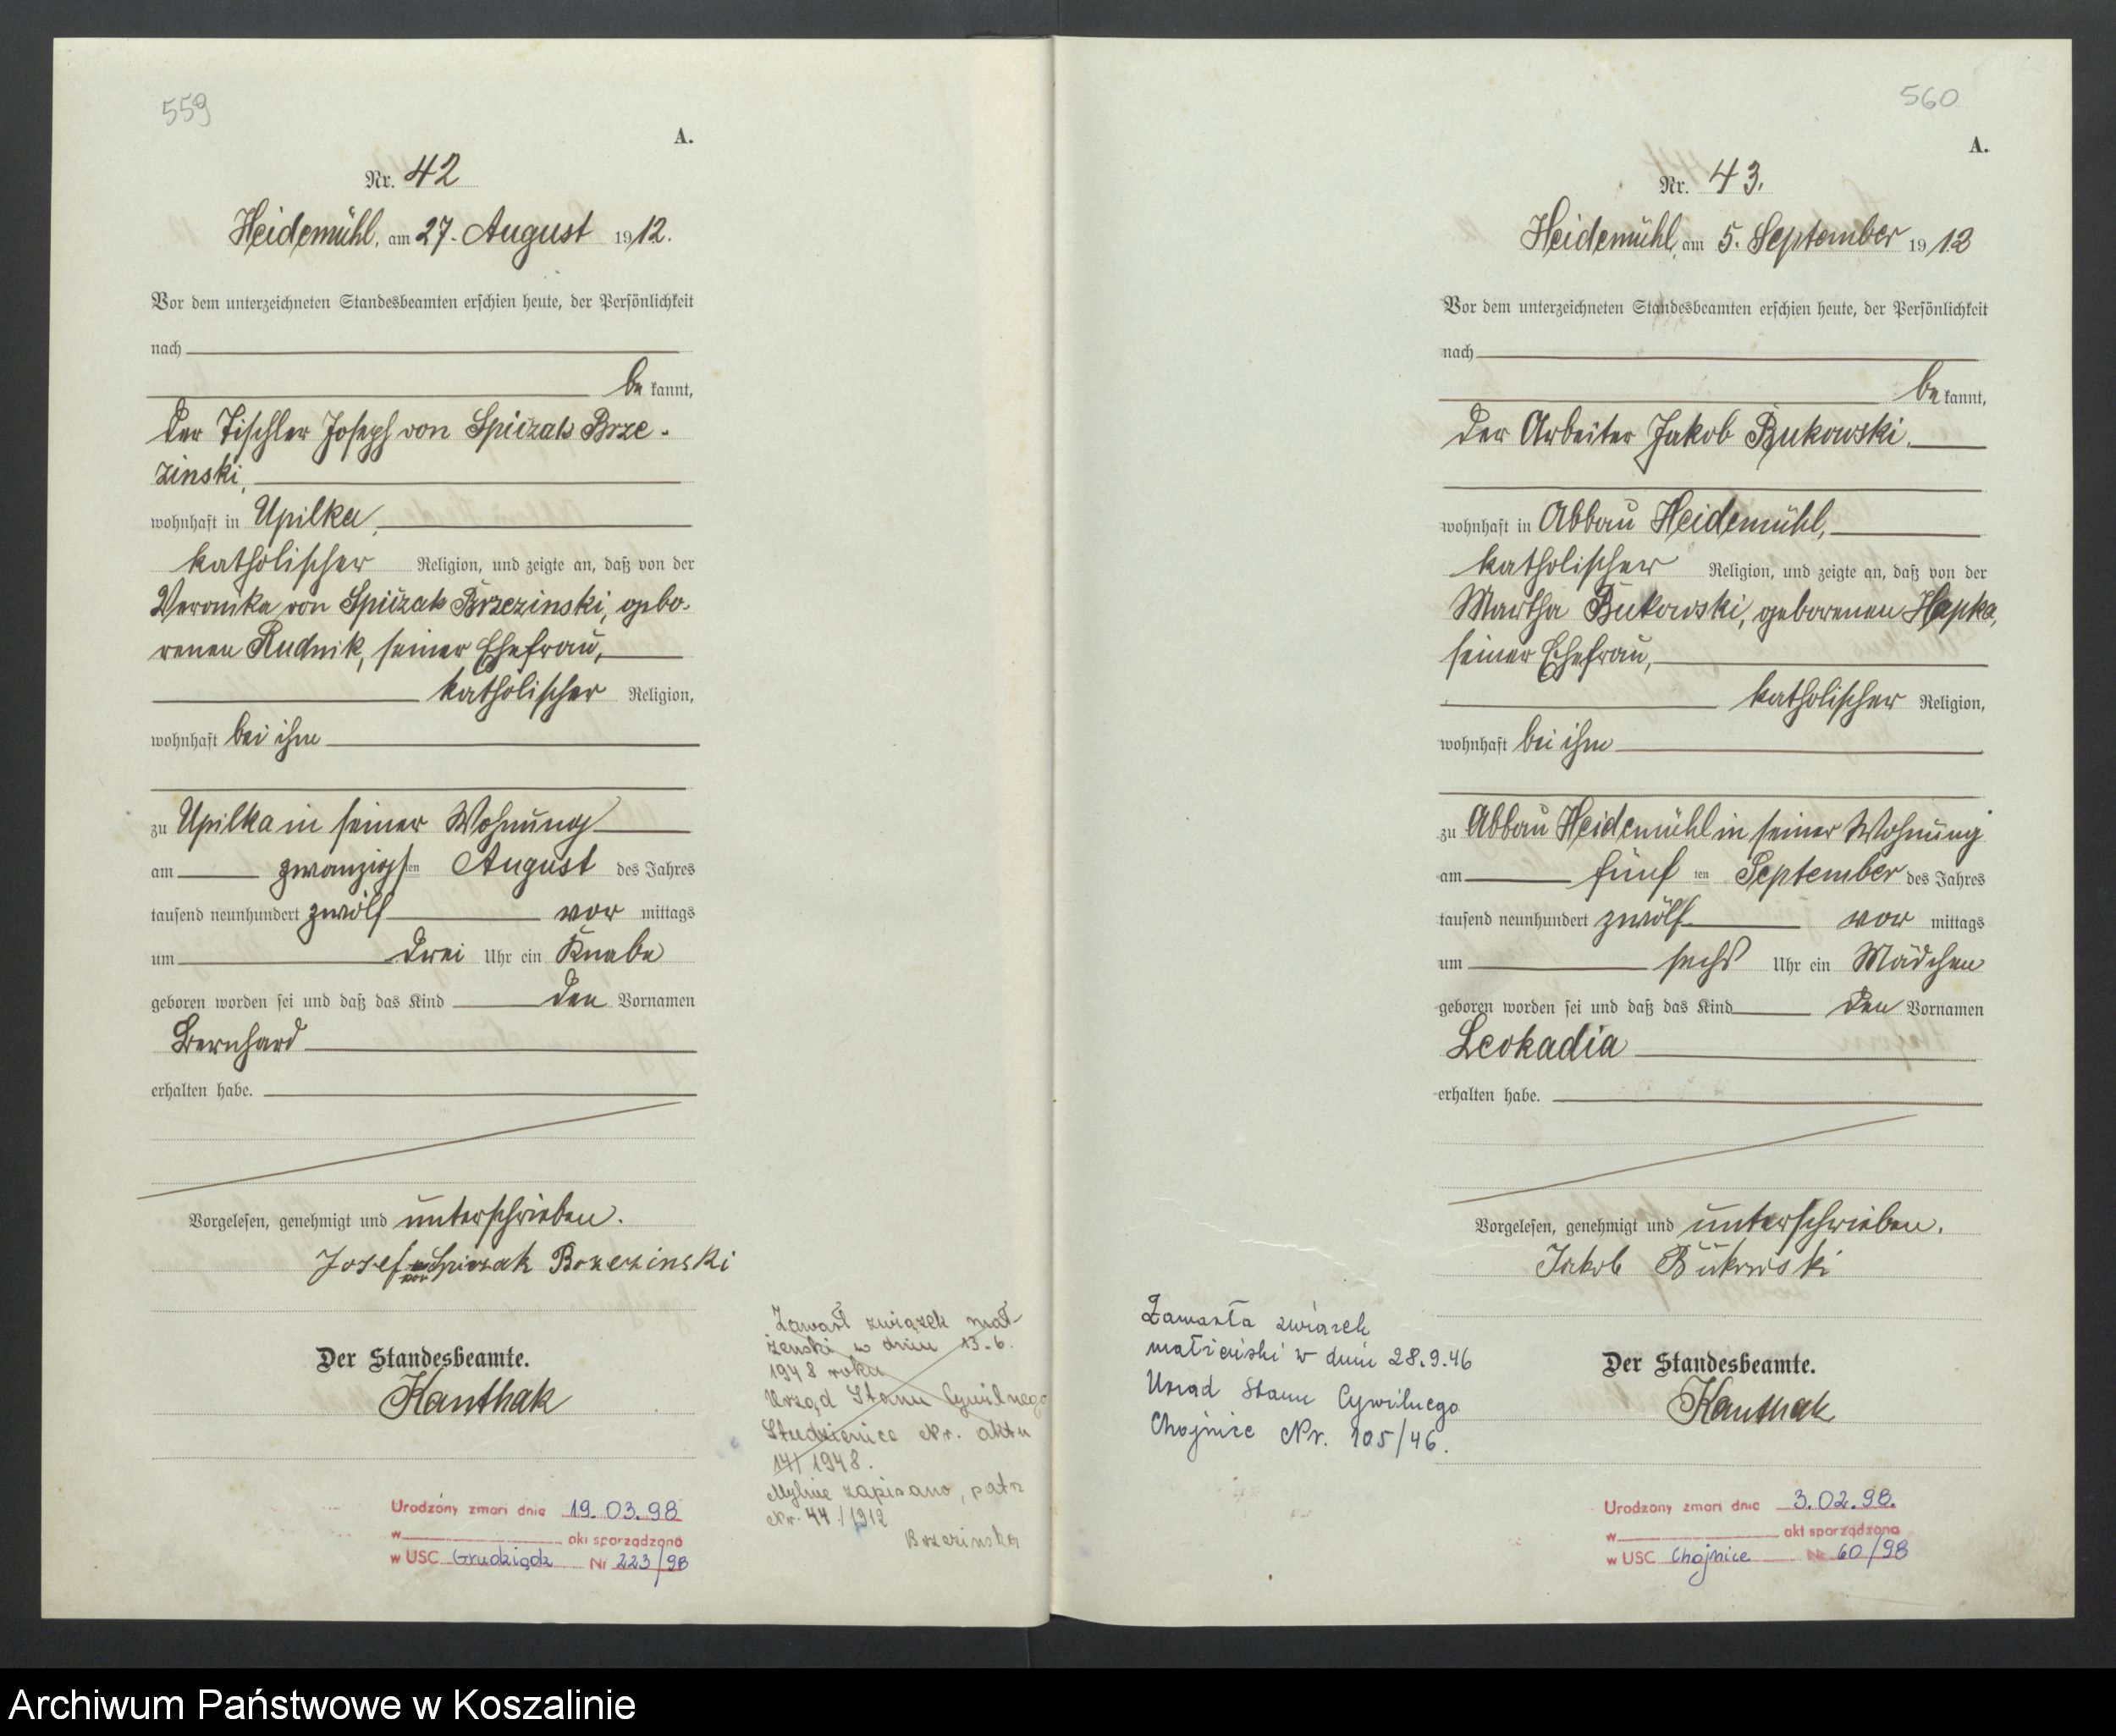 559
A.
Nr. 42
Heidemühl, am 27. August 1912.
Vor dem unterzeichneten Standesbeamten erschien heute, der Persönlichkeit
nach
be kannt,
der Tischler Joseph von Spiczak Brze-
zinski,
wohnhaft in Upilka,
katholischer Religion, und zeigte an, daß von der
Veronika von Spiczak Brzezinski, gebo-
renen Rudnik, seiner Ehefrau,
katholischer Religion,
wohnhaft bei ihm
zu Upilka in seiner Wohnung
am zwanzigsten August des Jahres
tausend neunhundert zwölf vor mittags
um drei Uhr ein Knabe
geboren worden sei und daß das Kind den Vornamen
Bernhard
erhalten habe.
Vorgelesen, genehmigt und unterschrieben.
Josef von Spiczak Brzezinski
Der Standesbeamte.
Kanthak
Zawarł związek mał-
żenski w dniu 13.6.
1948 roku
Urząd Stanu Cywilnego
Studzienice Nr. aktu
14/1948.
Mylnie zapisano, patrz
Nr. 44/1912
Brzezinska
Urodzony zmarł dnia 19.03.98
w akt sporządzono
w USC Grudziądz Nr 223/98
560
A.
Nr. 43.
Heidemühl, am 5. September 1912
Vor dem unterzeichneten Standesbeamten erschien heute, der Persönlichkeit
nach
be kannt,
der Arbeiter Jakob Bukowski,
wohnhaft in Abbau Heidemühl,
katholischer Religion, und zeigte an, daß von der
Martha Bukowski, geborenen Hapka,
seiner Ehefrau,
katholischer Religion,
wohnhaft bei ihm
zu Abbau Heidemühl in seiner Wohnung
am fünf ten September des Jahres
tausend neunhundert zwölf vor mittags
um sechs Uhr ein Mädchen
geboren worden sei und daß das Kind den Vornamen
Leokadia
erhalten habe.
Vorgelesen, genehmigt und unterschrieben.
Jakob Bukowski
Der Standesbeamte.
Kanthak
Zawarła związek
małżeński w dniu 28.9.46
Urząd Stanu Cywilnego
Chojnice Nr. 105/46.
Urodzony zmarł dnia 3.02.98.
w akt sporządzono
w USC Chojnice Nr 60/98
Archiwum Państwowe w Koszalinie